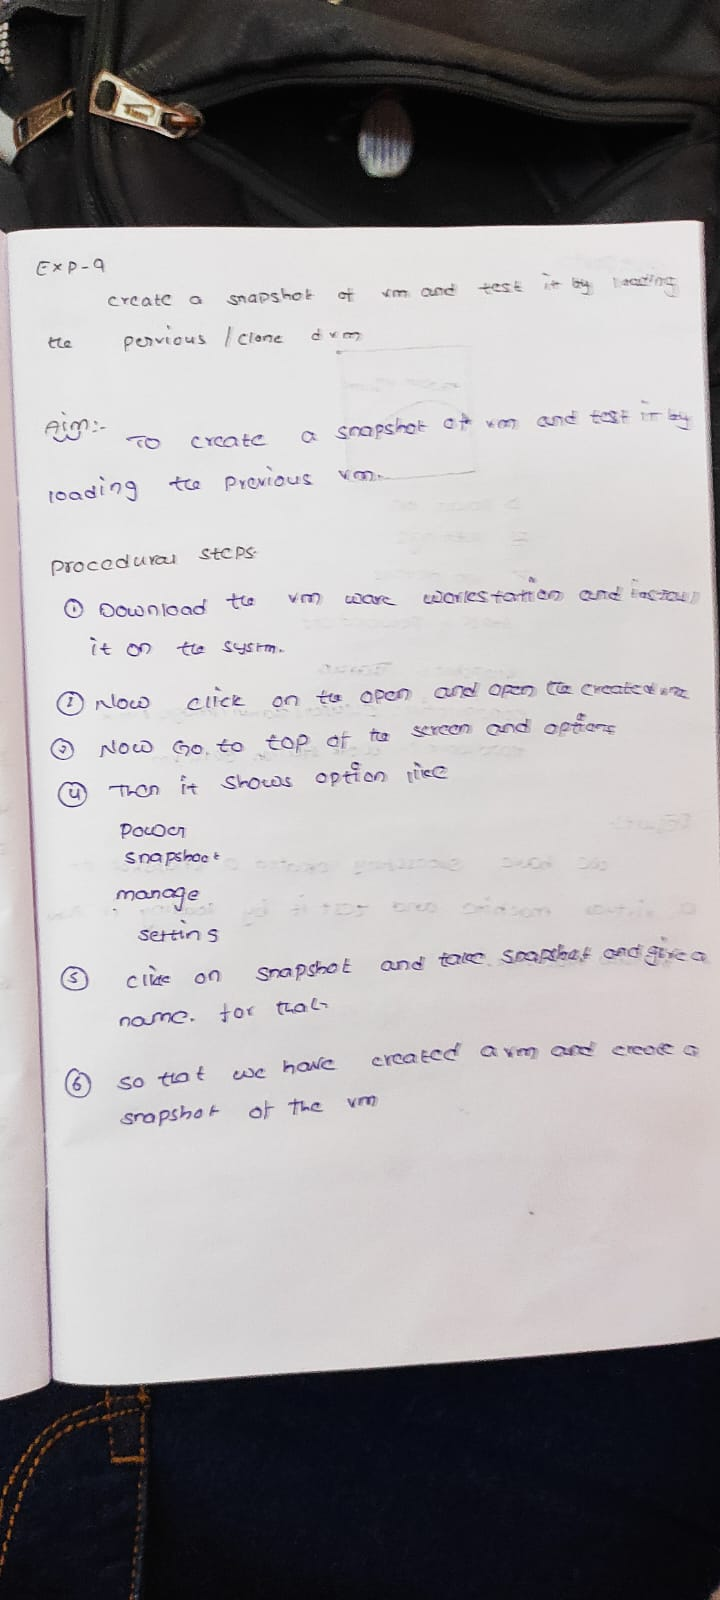 Exp-9
create a snapshot of vm and test it by loading
the pervious / clone d vm
Aim:-
To create a snapshot of vm and test it by
loading the Previous vm.
Procedural steps
① Download the vm ware workstation and install
it on the systm.
② Now click on the open and open the created
③ Now Go. to top of the screen and options
④ Then it shows option like
power
snapshoot
manage
settins
⑤ clike on snapshot and take snapshot and give a
name. for that
⑥ so that we have created a vm and create a
snapshot of the vm